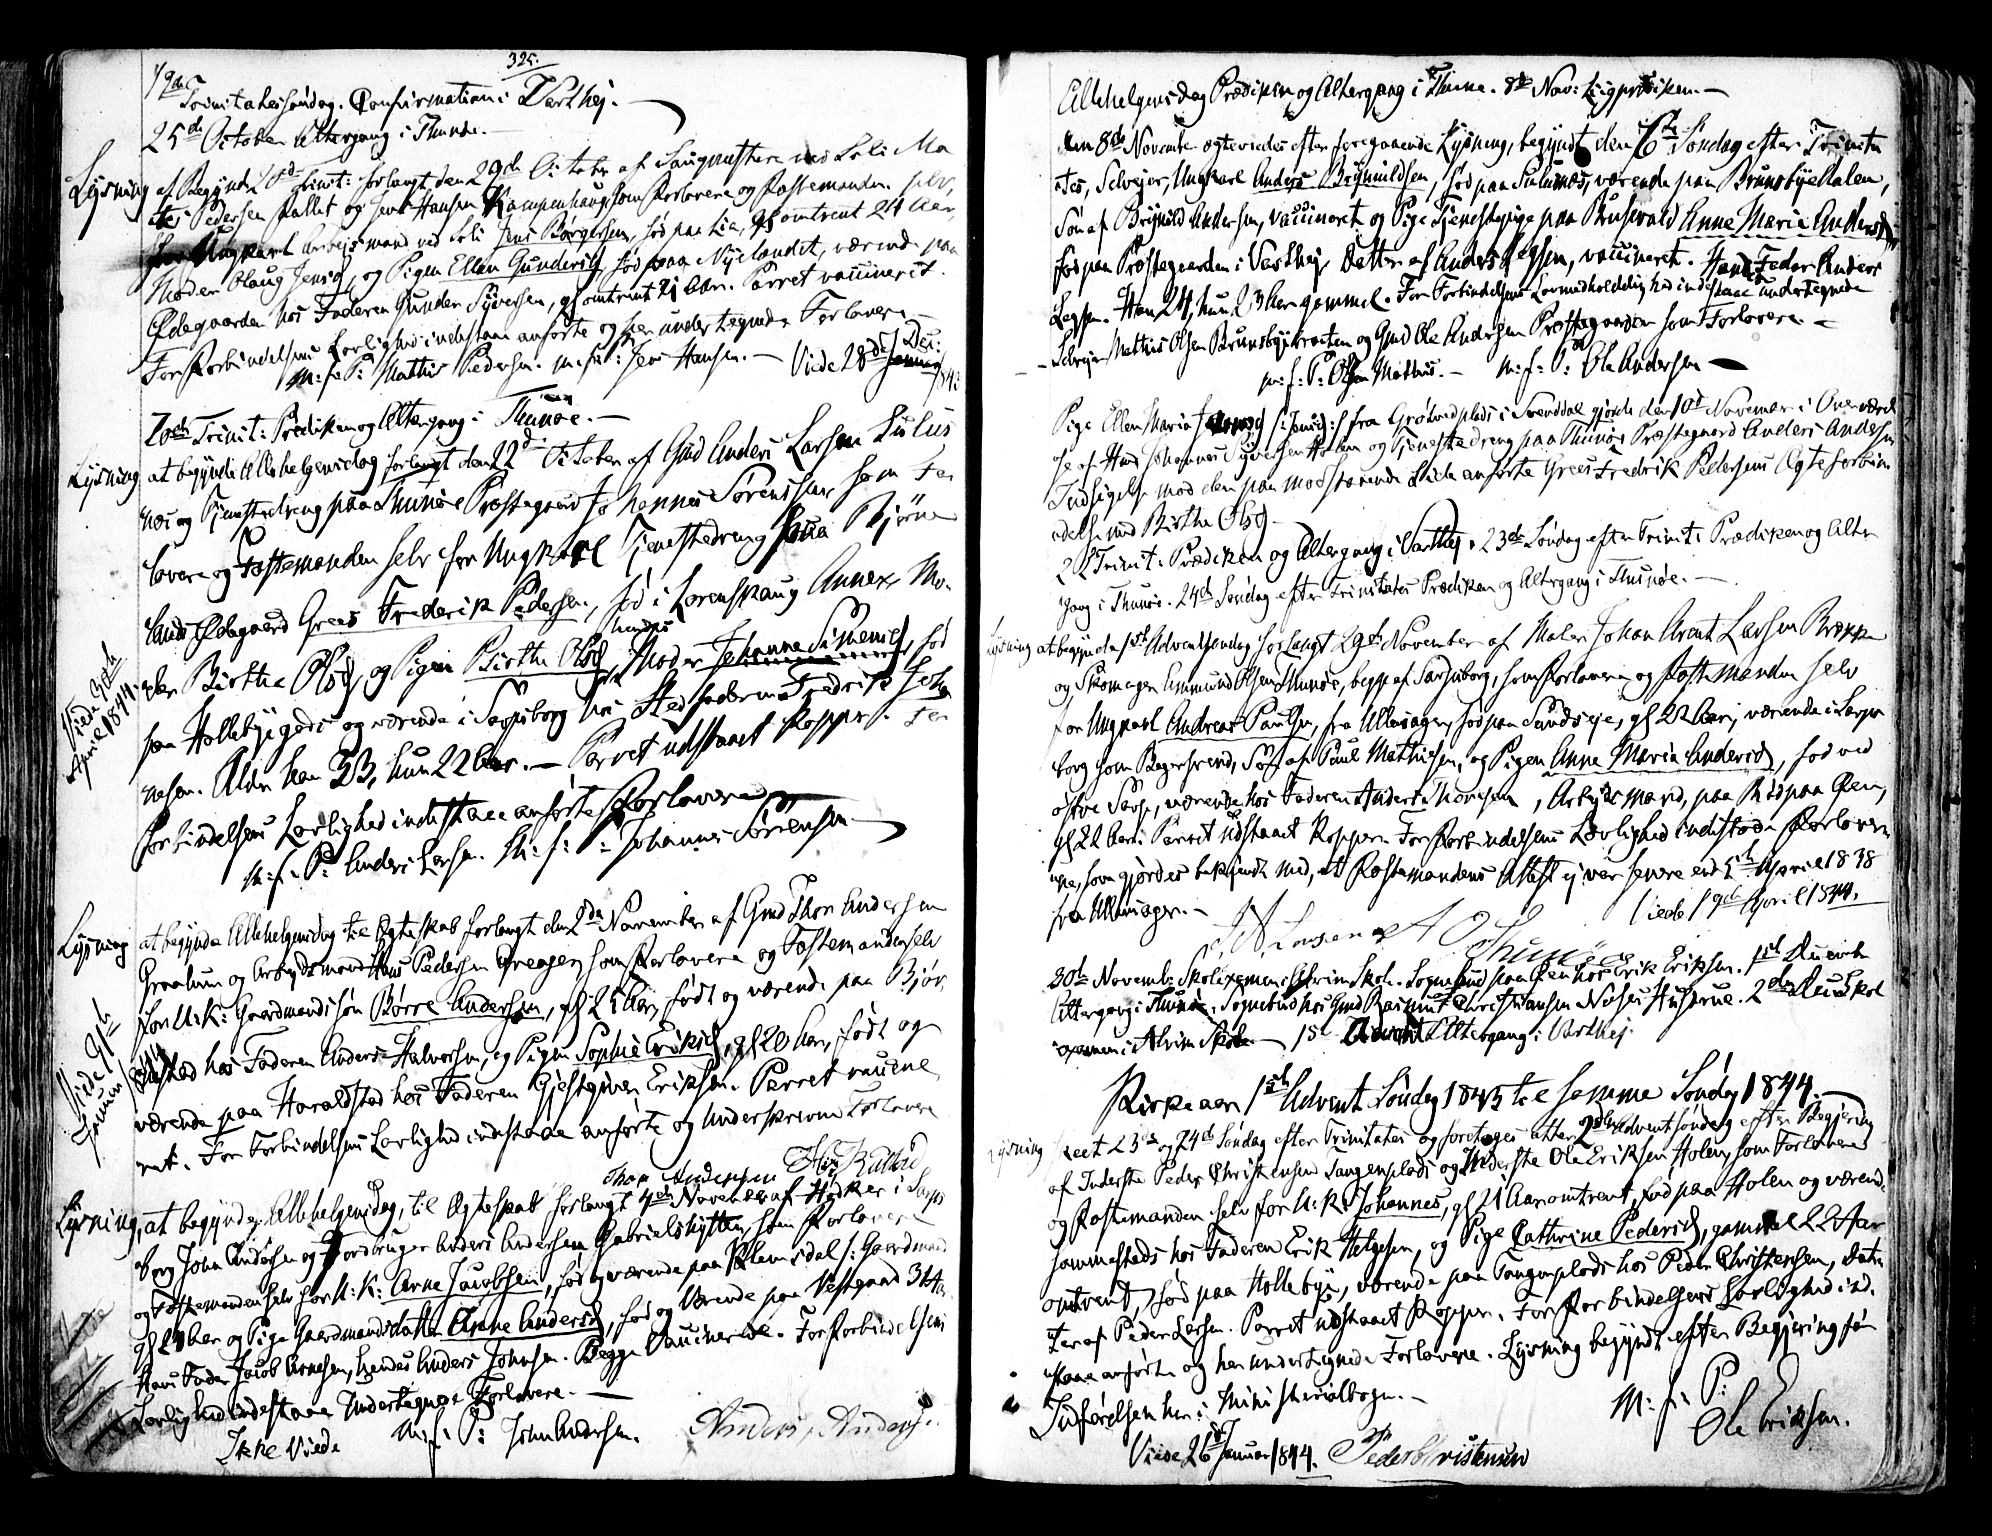 325.
19de Trinitatissøndag. Confirmation i Varthej.
25de October Altergang i Thunøe.
Lysning at begynde 20de Trinit: forlangt den 29de October af Saugmester ved Soli Ma
Pedersen Pallet og Jens Hansen Kampenhaug som Forlovere og Fæstemanden selv,
Ungkarl Arbeidsmand ved Soli Jens Børgersen, fød paa Lie, gl omtrent 24 Aar,
Moder Olaug Jensd, og Pigen Ellen Gundersd, fød paa Nyelandet, værende paa
Ødegaarden hos Faderen Gunder Syversen, gl omtrent 21 Aar. Parret vaccineret.
For Forbindelsens Lovlighed indestaae anførte og her undertegnede Forlovere.
M: f: P: Mathis Pedersen. m: f: P: Jens Hansen. — Viede 28de Dec: 1843
20de Trinit: Prædiken og Altergang i Thunøe. —
Lysning at begynde Allehelgensdag forlangt den 22de October af Gmd Anders Larsen Sulus
næs og Tjenestedreng paa Thunøe Præstegaard Johannes Sørensen som For
lovere og Fæstemanden selv for Ungkarl Tjenestedreng paa Bjørne
lands Ødegaard Grees Frederik Pedersen, fød i Lorenskaug Annex Mo
der Birthe Olsd, og Pigen Birthe Olsd, hendes Moder Johanne Simensd, fød
paa Hollebyegods og værende i Sarpsborg hos Stedfaderen Fredrik Joha
nesen. Alder han 33, hun 22 Aar. — Parret udstaaet Kopper. For
Forbindelsens Lovlighed indestaae anførte Forlovere
M: f: P: Anders Larsen. M: f: P: Johannes Sørensen
Viede 30te
April 1844.
Lysning at begynde Allehelgensdag til Ægteskab forlangt den 2den November af Gmd Thor Andersen
Graalum og Arbeidsmand Hans Pedersen Greager, som Forlovere og Fæstemanden selv
for U:K: Gaardmandssøn Børre Andersen, gl 25 Aar, født og værende paa Bjør
stad hos Faderen Anders Halvorsen, og Pigen Sophie Eriksd, gl 20 Aar, født og
værende paa Haraldstad hos Faderen Gjestgiver Eriksen. Parret vaccine
ret. For Forbindelsens Lovlighed indestaae anførte og underskrevne Forlovere
Thor Andersen
Viede 9de
Januari 1844
Lysning, at begynde Allehelgensdag, til Ægteskab forlangt 4de November af Høker i Sarps
borg John Andersen og Jordbruger Anders Andersen Gabrielshytten, som Forlovere
og Fæstemanden selv for U: K: Arne Jacobsen, fød og værende paa Klemsdal /: Gaardmand
gl 29 Aar og Pige Gaardmandsdatter Anne Andersd, fød og værende paa Vestgaard 31 Aar
Hans Fader Jacob Arnesen, hendes Anders Johnsen. Begge Vaccinerede. For Forbindelsens
Lovlighed indestaae Undertegnede Forlovere. —
Ikke Viede M: f: P: John Andersen. Anders, Anders
Allehelgensdag Prædiken og Altergang i Thunøe. 8de Nov: Liigprædiken. —
Den 8de November ægteviedes efter foregaaende Lysning, begyndt den 16de Søndag efter Trinita
tes, Selveier, Ungkarl Anders Brynildsen, fød paa Sulusnæs, værende paa Brunsbye Kalen,
Søn af Brynild Andersen, vaccineret og Pige Tjenestepige paa Brusevold Anne Maria Andersd,
fød paa Præstegaarden i Varthej Datter af Anders Legsen, vaccineret. Fader Anders
Legsen. Han 24, hun 23 Aar gammel. For Forbindelsens Lovmedholdelighed indestaae undertegnede
Selveier Mathis Olsen Brunsbyebraaten og Gmd Ole Andersen Præstegaarden som Forlovere. —
m: f: P: Olsen Mathis. — m: f: P: Ole Andersen —
Pige Ellen Maria Jensd /: Jensd :/ fra Grøtvedplads i Svenddal gjorde den 10de November i Overværel
se af Hmd Johannes Syversen Holen og Tjenestedreng paa Thunøe Præstegaard Anders Andersen
Indsigelse mod den paa modstaaende Side anførte Grees Fredrik Pedersens Ægteforbin
delse med Birthe Olsd —
22 Trinit: Prædiken og Altergang i Varthej. 23de Søndag efter Trinit: Prædiken og Alter
gang i Thunøe. 24de Søndag efter Trinitates Prædiken og Altergang i Thunøe. —
Lysning at begynde 1ste Adventsøndag forlangt 29de November af Maler Johan Arent Larsen Brække
og Skomager Ammund Olsen Thunøe, begge af Sarpsborg, som Forlovere og Fæstemanden selv
for Ungkarl Andreas Paulsen, fra Ullensager, fød paa Sundseje, gl 22 Aar, værende i Sarps
borg som Bagersvend, Søn af Paul Mathisen, og Pigen Anne Maria Andersd, fød ved
østre Sarp, værende hos Faderen Anders Thoresen, Arbeidsmand, paa Rødpaa Øen,
gl 22 Aar. Parret udstaaet Kopper. For Forbindelsens Lovlighed indestode Forlover
ne, som gjordes bekjendt med, at Fæstemandens Attest ej var senere end 5te April 1838
fra Ullensager. — Viede 19de April 1844.
J A Larsen A O Thunøe
30te Novemb: Skolexamen i Alvim Skole. Sognebud paa Øen hos Erik Eriksen. 1ste December
Altergang i Thunøe. Sognebud hos Gmd Rasmus Christiansen Hustrue. 2den Dec: Skol
examen i Alvim Skole. — 1ste Advent Altergang i Varthej.
Kirkeaar 1ste Advent Søndag 1843 til samme Søndag 1844. —
Lysning skeet 23de og 24de Søndag efter Trinitates og foretoges atter 2den Adventsøndag efter Begjering
af Inderste Peder Christensen Tangenplads og Inderste Ole Eriksen Holen, som Forlovere
og Fæstemanden selv for U: K: Johannes, gl 21 Aar omtrent, fød paa Holen og værende
sammesteds hos Faderen Erik Helgesen, og Pige Cathrine Pedersd, gammel 22 Aar
omtrent, fød paa Hollebye, værende paa Tangenplads hos Peder Christensen, Dat
ter af Peder Larsen. Parret udstaaet Kopper. For Forbindelsens Lovlighed ind
staae anførte og her undertegnede Forlovere. Lysning begyndt efter Begjering før
Indførelsen her i Ministerialbogen. —
M: f: P:
Ole Eriksen.
Viede 26de Januar 1844. Peder Christensen